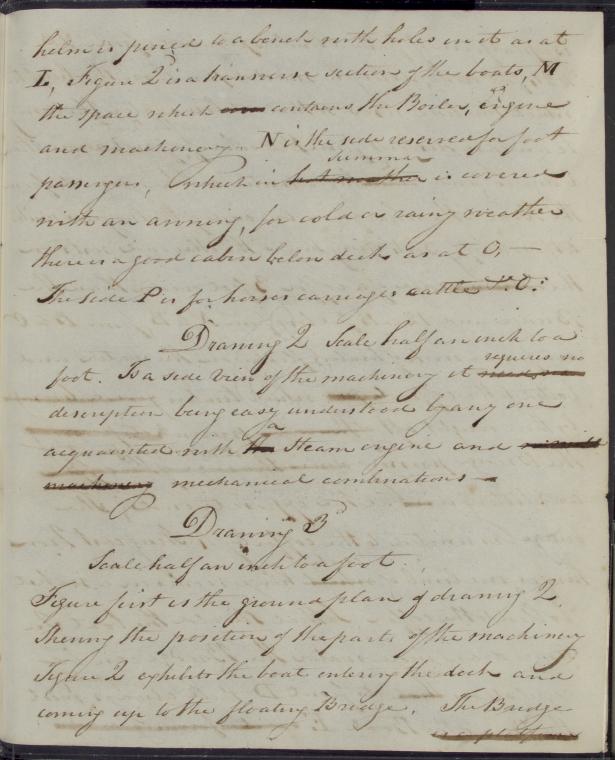 helm is pined to a bench with holes in it as at
L, Figure 2 is a transverse section of the boats, M
the space which contains the Boiler, engine
and machinery. N is the side reserved for foot
summer
passengers, which in hot weather is covered
with an awning, for cold or rainy weather
there is a good cabin below deck as at O, —
The side P is for horses carriages cattle
Drawing 2 Scale half an inch to a
requires no
foot. Is a side view of the machinery it
description being easy understood by any one
a
acquainted with Steam engine and
machinery mechanical combinations —
Drawing 3
Scale half an inch to a foot.
Figure first is the ground plan of drawing 2
Shewing the position of the parts of the machinery
Figure 2 exhibits the boat entering the dock and
coming up to the floating Bridge. The Bridge
is a platform